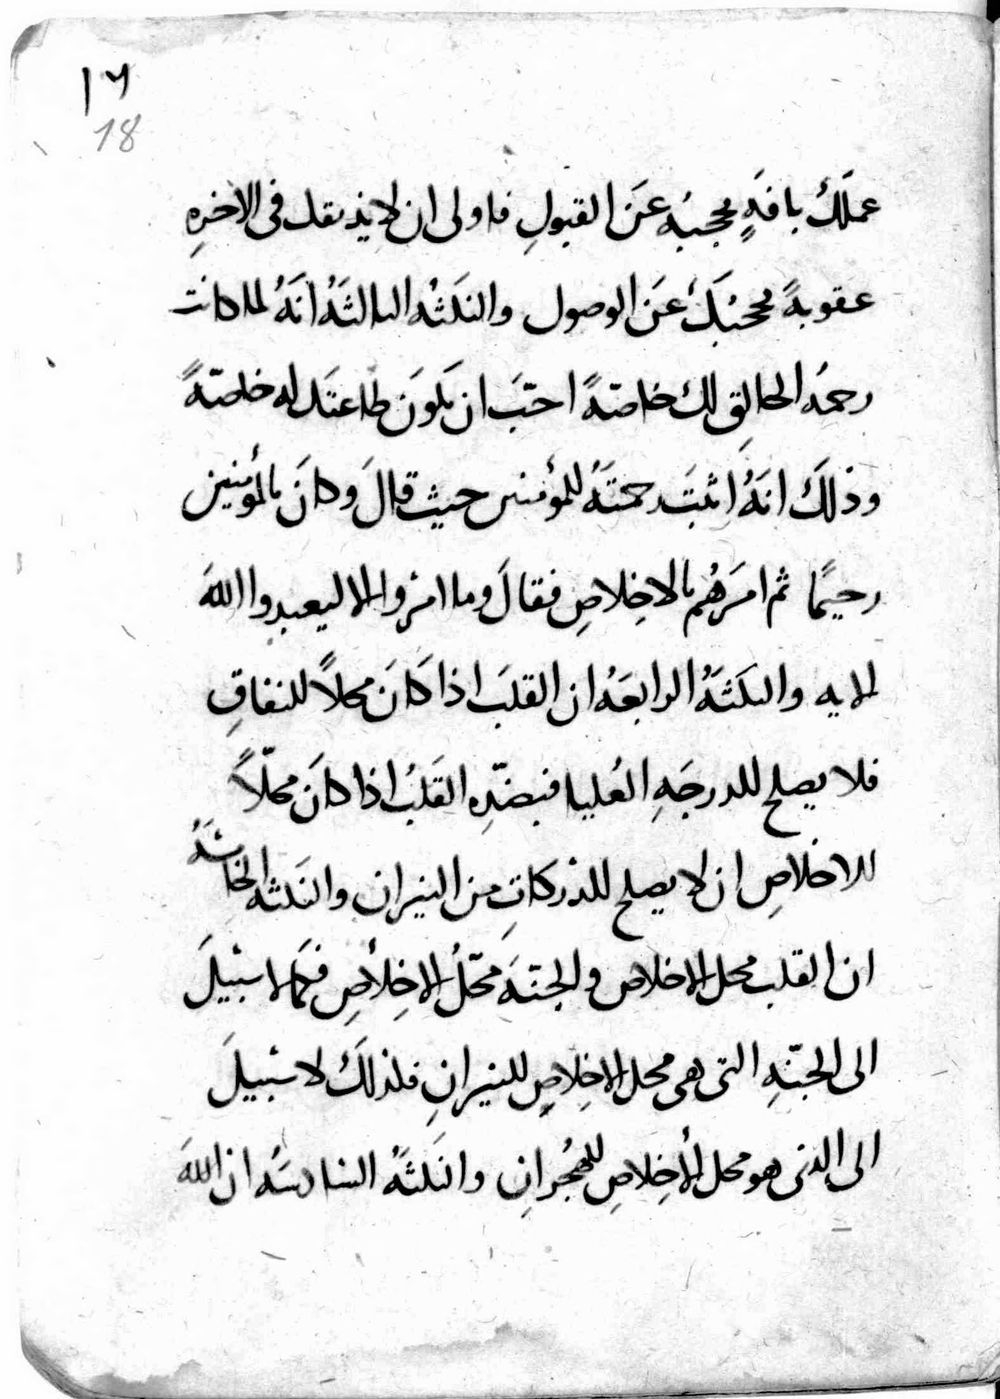 ١٦
18
عملَكَ بافةٍ محجبُه عنَ القبولِ فاولى ان لا يذيقك فى الاخرهِ
عقوبهً محجبُكَ عنَ الوصول والنكثهُ الثالثَهُ انهُ لما كانت
رحمهُ الخالقِ لك خاصّهً احبَّ ان تكونَ طاعتك له خاصّهً
وذلكَ انهُ اثبتَ رحمتَهُ للمؤمنين حيث قالَ وكانَ بالمؤمنين
رحيمًا ثم امرَهُم بالاخلاصِ فقالَ وما امروا الا ليعبدوا اللهَ
الايه والنكثَهُ الرابعَهُ ان القلبَ اذا كانَ محلاً للنفاقِ
فلا يصلح للدرجَهِ العُليا فبضدّه القلبُ اذا كانَ محلّاً
للاخلاصِ ان لا يصلح للدركاتِ من النيران والنكثه الخامسَهُ
ان القلب محل الاخلاص والجنهَ محلُّ الاخلاصِ فكما لا سبيلَ
الى الجنّهِ التى هى محل الاخلاصِ للنيرانِ فلذلكَ لا سبيلَ
الى الذى هو محل الاخلاصِ للهجُرانِ والنكثهُ السادسَهُ ان اللهَ